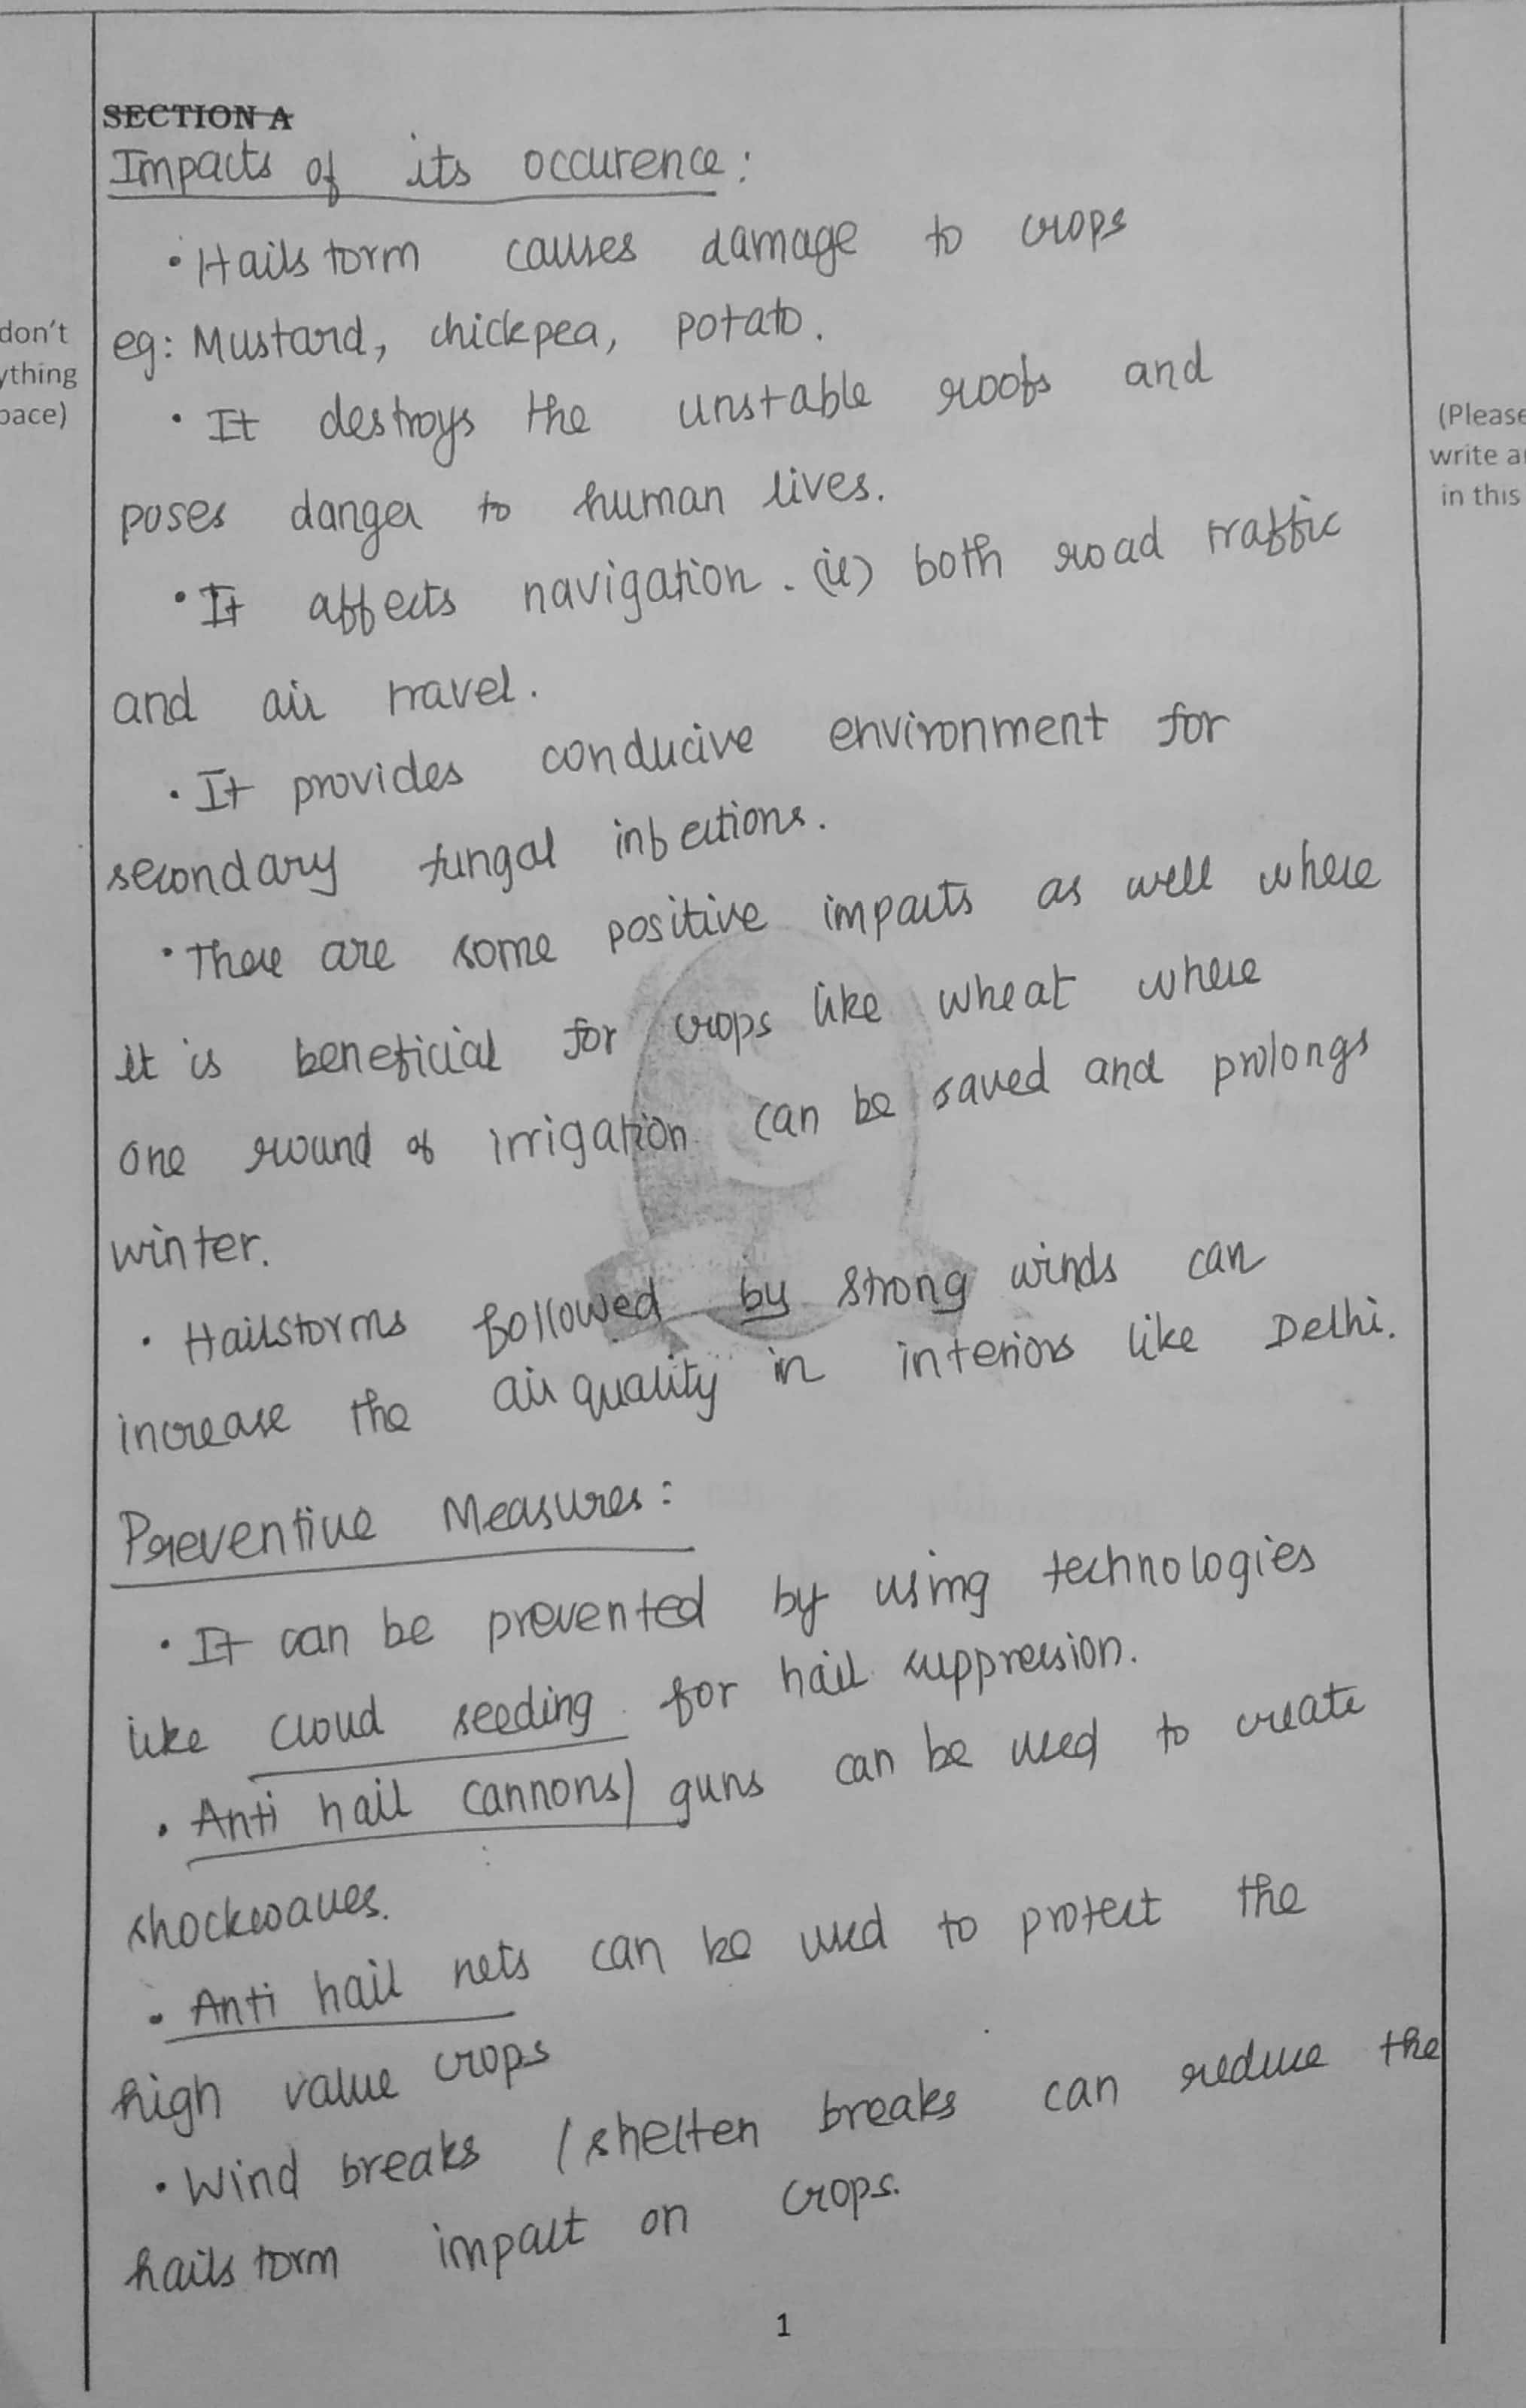 SECTION A
Impacts of its occurence :
• Hailstorm causes damage to crops
eg: Mustard, chickpea, potato.
• It destroys the unstable roofs and
poses danger to human lives.
• It affects navigation. (ie) both road traffic
and air travel.
• It provides conducive environment for
secondary fungal infections.
• There are some positive impacts as well where
it is beneficial for crops like wheat where
one round of irrigation can be saved and prolongs
winter.
• Hailstorms followed by strong winds can
increase the air quality in interiors like Delhi.
Preventive Measures :
• It can be prevented by using technologies
like cloud seeding for hail suppression.
• Anti hail cannons/guns can be used to create
shockwaves.
• Anti hail nets can be used to protect the
high value crops
• Wind breaks / shelten breaks can reduce the
hailstorm impact on crops.
1
don't
ything
pace)
(Please
write a
in this